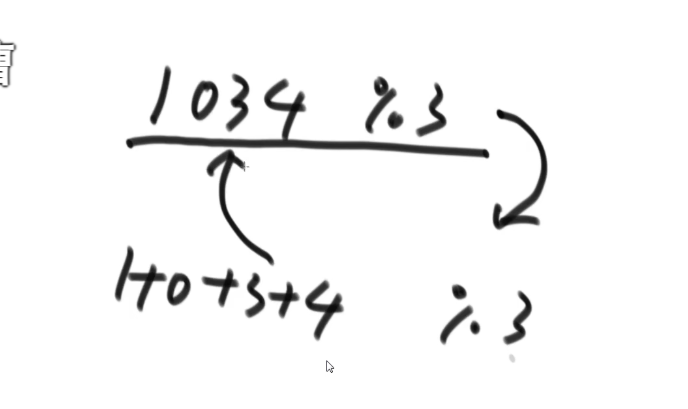 1034 %3
1+0+3+4 %3